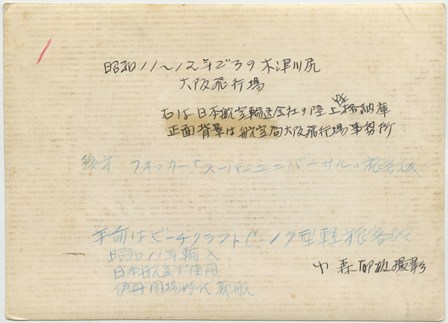 昭和11〜12年ごろの木津川尻
大阪飛行場
右は日本航空輸送会社の陸上機格納庫
正面背景は航空局大阪飛行場事務所
後方 フォッカー「スーパーユニバーサル」旅客機
手前はビーチクラフトC-17型軽旅客機
昭和11年輸入
日本航空で使用
伊丹開場時代
撮影